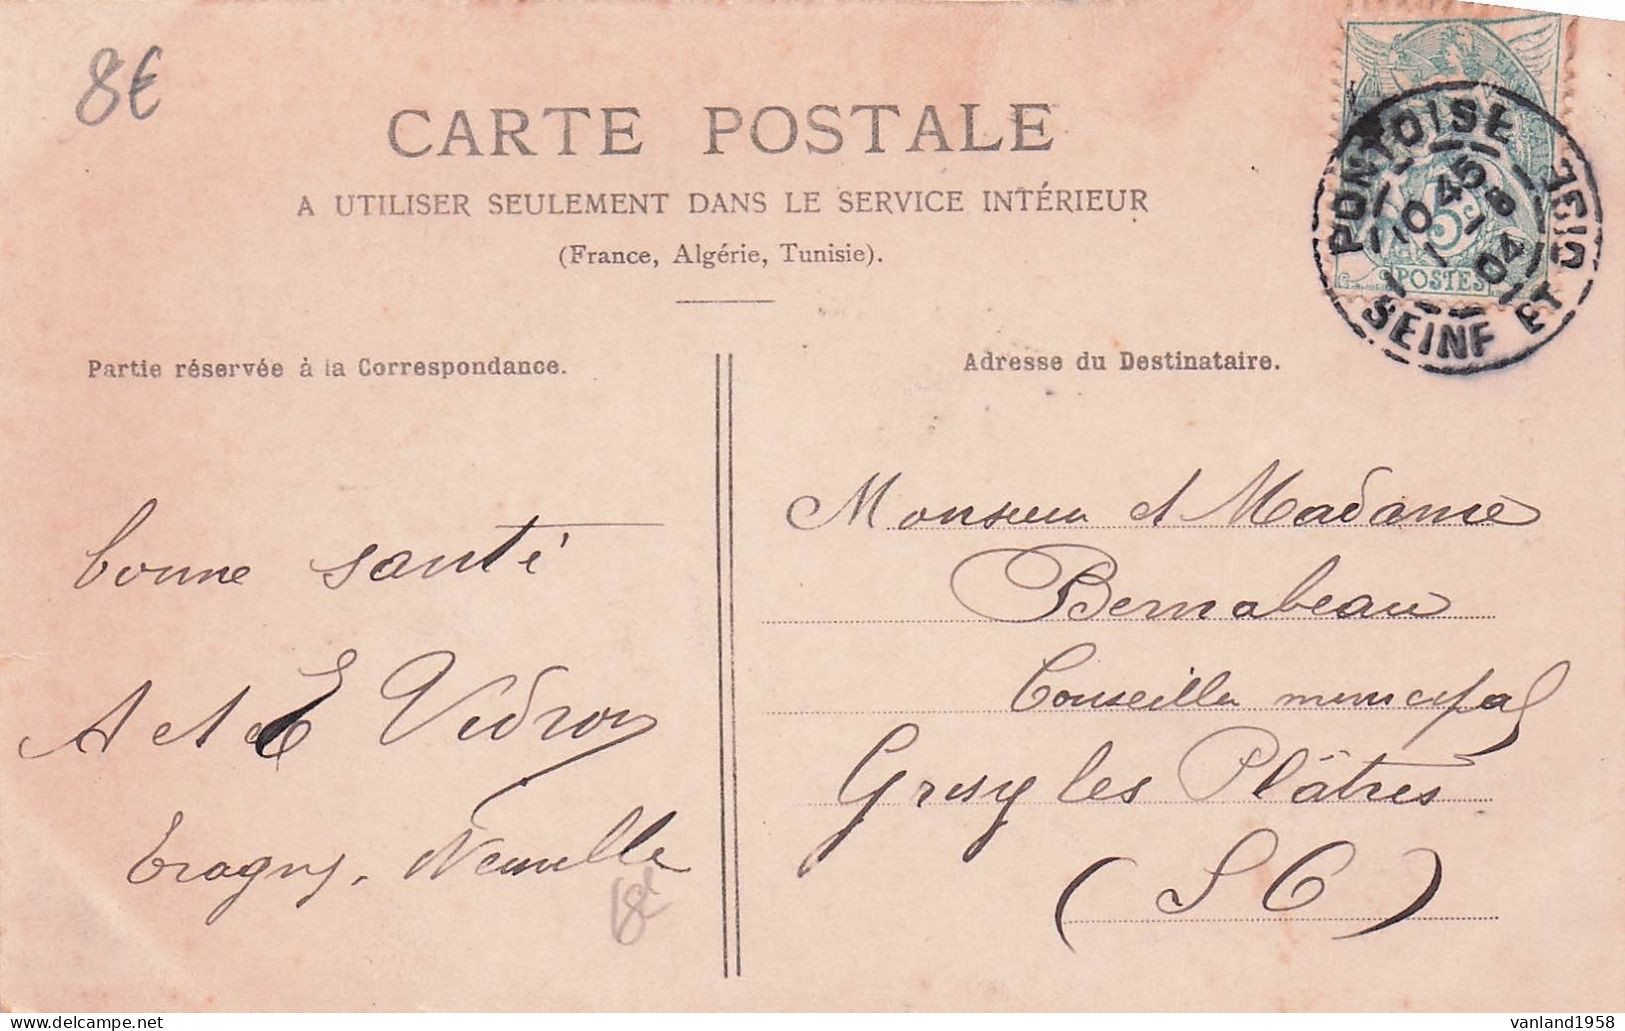 8€
CARTE POSTALE
A UTILISER SEULEMENT DANS LE SERVICE INTÉRIEUR
(France, Algérie, Tunisie).
PONTOISE
SEINE ET OISE
10 45
04
5c
POSTES
Partie réservée à la Correspondance.
bonne santé
A et E Vidron
Eragny. Neuville
8€
Adresse du Destinataire.
Monsieur et Madame
Bernabeau
Conseiller municipal
Grisy les Plâtres
(S O)
vanland1958